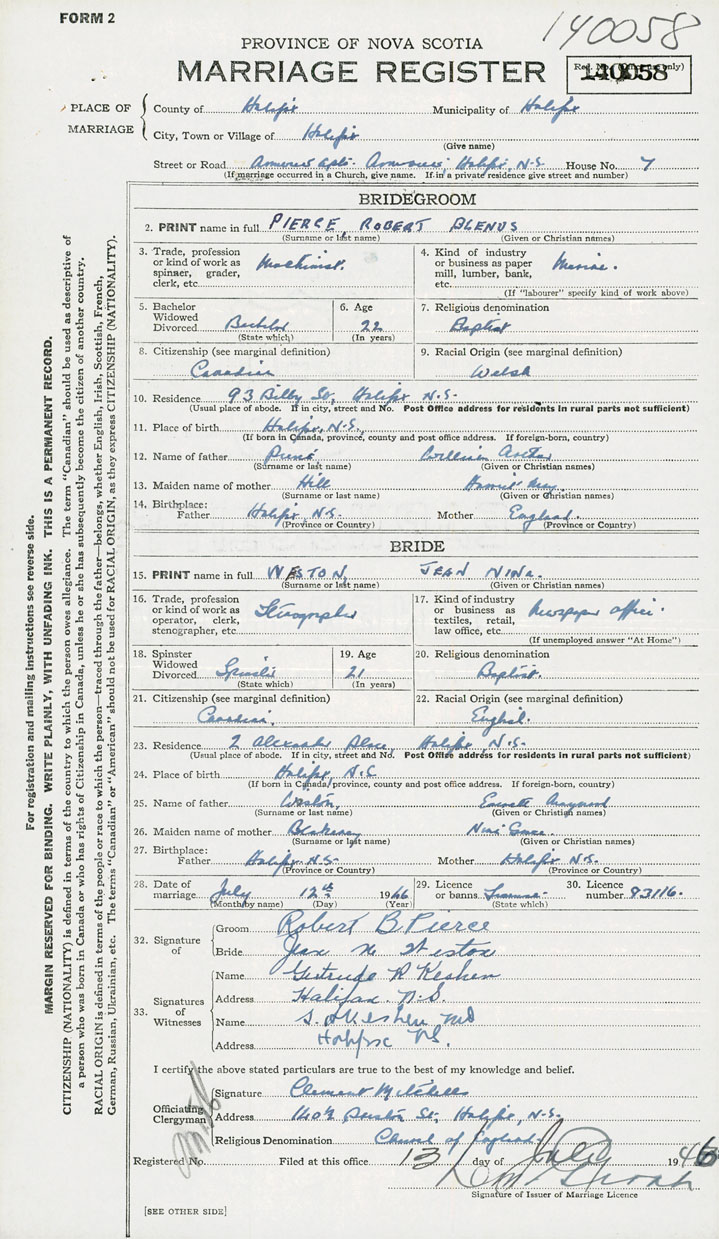 FORM 2
140058
PROVINCE OF NOVA SCOTIA
MARRIAGE REGISTER
Reg. No. (Office use only)
140058
PLACE OF MARRIAGE
County of Halifax Municipality of Halifax
City, Town or Village of Halifax
(Give name)
Street or Road Halifax, N.S. House No. 7
(If marriage occurred in a Church, give name. If in a private residence give street and number)
BRIDEGROOM
2. PRINT name in full PIERCE, ROBERT BLENUS
(Surname or last name) (Given or Christian names)
3. Trade, profession or kind of work as spinner, grader, clerk, etc. Machinist.
4. Kind of industry or business as paper mill, lumber, bank, etc. Marine.
(If "labourer" specify kind of work above)
5. Bachelor Widowed Divorced Bachelor
(State which)
6. Age 22
(In years)
7. Religious denomination Baptist
8. Citizenship (see marginal definition) Canadian
9. Racial Origin (see marginal definition) Welsh
10. Residence 93 Bilby St., Halifax N.S.
(Usual place of abode. If in city, street and No. Post Office address for residents in rural parts not sufficient)
11. Place of birth Halifax, N.S.
(If born in Canada, province, county and post office address. If foreign-born, country)
12. Name of father William
(Surname or last name) (Given or Christian names)
13. Maiden name of mother Hill May
(Surname or last name) (Given or Christian names)
14. Birthplace:
Father Halifax N.S. Mother England.
(Province or Country) (Province or Country)
BRIDE
15. PRINT name in full WESTON, JEAN NINA.
(Surname or last name) (Given or Christian names)
16. Trade, profession or kind of work as operator, clerk, stenographer, etc. Stenographer
17. Kind of industry or business as textiles, retail, law office, etc. Newspaper office.
(If unemployed answer "At Home")
18. Spinster Widowed Divorced Spinster
(State which)
19. Age 21
(In years)
20. Religious denomination Baptist.
21. Citizenship (see marginal definition) Canadian.
22. Racial Origin (see marginal definition) English.
23. Residence 2 Alexander Place, Halifax N.S.
(Usual place of abode. If in city, street and No. Post Office address for residents in rural parts not sufficient)
24. Place of birth Halifax, N.S
(If born in Canada, province, county and post office address. If foreign-born, country)
25. Name of father Weston, Everett Maynard
(Surname or last name) (Given or Christian names)
26. Maiden name of mother Blakeney Nina Grace.
(Surname or last name) (Given or Christian names)
27. Birthplace:
Father Halifax N.S. Mother Halifax N.S.
(Province or Country) (Province or Country)
28. Date of marriage July 12th 1946
(Month by name) (Day) (Year)
29. Licence or banns License
(State which)
30. Licence number 83116.
32. Signature of
Groom Robert B. Pierce
Bride Jean N. Weston
33. Signatures of Witnesses
Name Gertrude R Keshen
Address Halifax. N.S.
Name Keshen MD
Address Halifax NS.
I certify the above stated particulars are true to the best of my knowledge and belief.
Officiating Clergyman
Signature Clement Mitchell
Address St., Halifax, N.S.
Religious Denomination Church of England.
Registered No. Filed at this office 13 day of July 1946
Signature of Issuer of Marriage Licence
[SEE OTHER SIDE]
For registration and mailing instructions see reverse side.
MARGIN RESERVED FOR BINDING. WRITE PLAINLY, WITH UNFADING INK. THIS IS A PERMANENT RECORD.
CITIZENSHIP (NATIONALITY) is defined in terms of the country to which the person owes allegiance. The term "Canadian" should be used as descriptive of
a person who was born in Canada or who has rights of Citizenship in Canada, unless he or she has subsequently become the citizen of another country.
RACIAL ORIGIN is defined in terms of the people or race to which the person—traced through the father—belongs, whether English, Irish, Scottish, French,
German, Russian, Ukrainian, etc. The terms "Canadian" or "American" should not be used for RACIAL ORIGIN, as they express CITIZENSHIP (NATIONALITY).